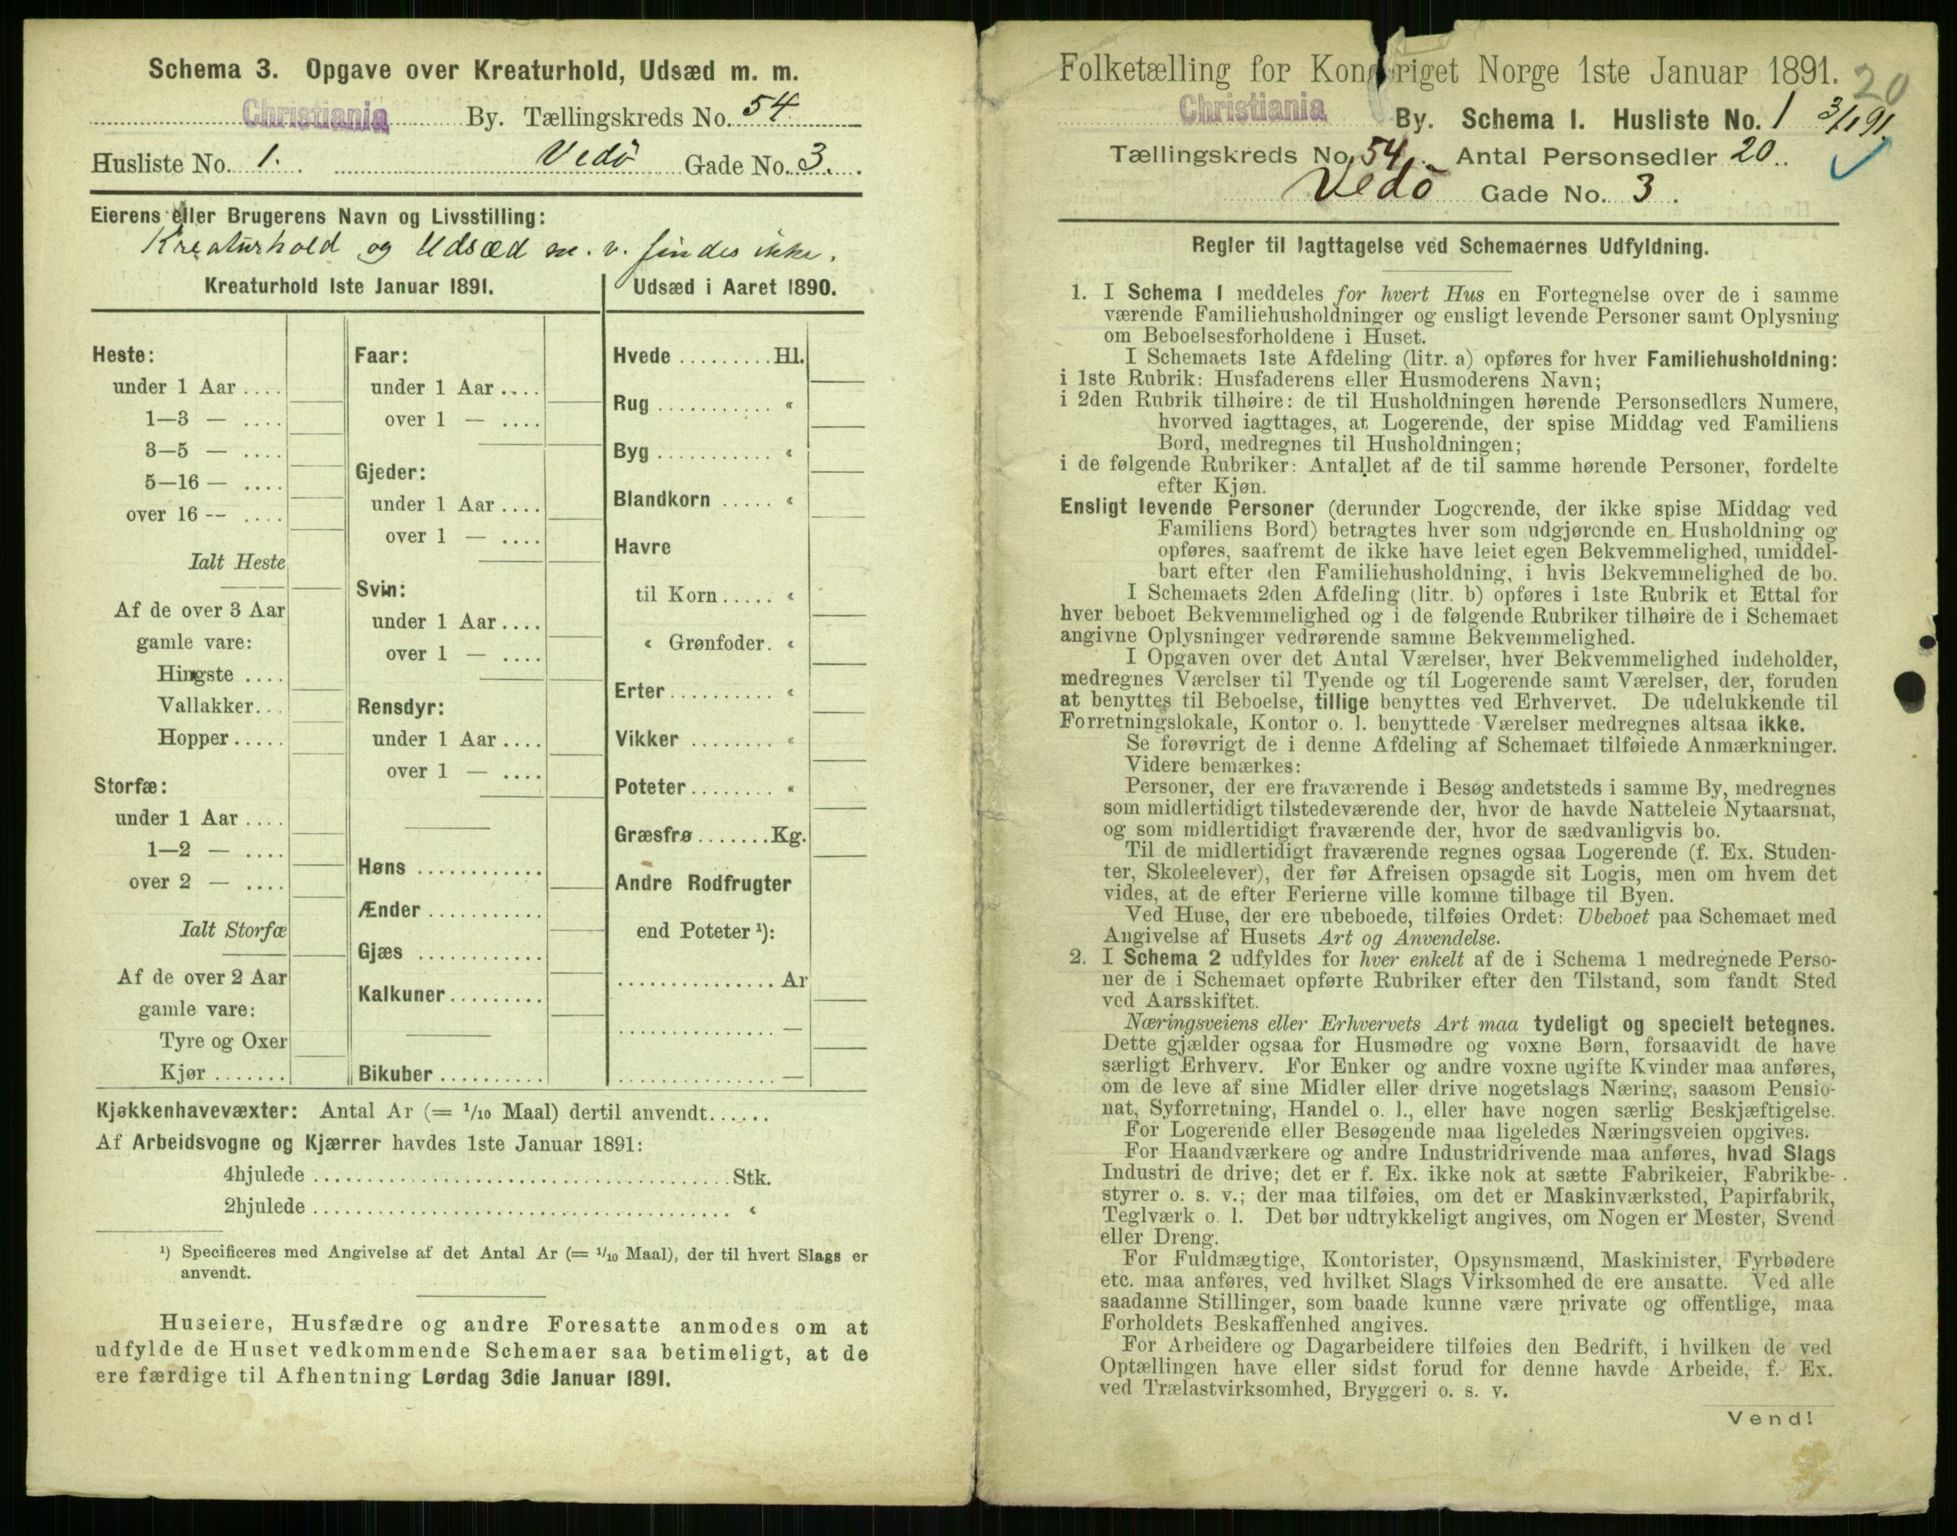 Schema 3. Opgave over Kreaturhold, Udsæd m. m.
Christiania By. Tællingskreds No. 54.
Husliste No. 1. Vedö Gade No. 3.
Eierens eller Brugerens Navn og Livsstilling:
Kreaturhold og Udsæd m. v. findes ikke.
Kreaturhold 1ste Januar 1891.
Heste:
under 1 Aar ....
1—3 — ....
3—5 — ....
5—16 — ....
over 16 — ....
Ialt Heste
Af de over 3 Aar
gamle vare:
Hingste ....
Vallakker...
Hopper.....
Storfæ:
under 1 Aar ....
1—2 — ....
over 2 — ....
Ialt Storfæ
Af de over 2 Aar
gamle vare:
Tyre og Oxer
Kjør .......
Faar:
under 1 Aar ....
over 1 — ....
Gjeder:
under 1 Aar ....
over 1 — ....
Svin:
under 1 Aar ....
over 1 — ....
Rensdyr:
under 1 Aar ....
over 1 — ....
Høns ............
Ænder ...........
Gjæs ............
Kalkuner.........
Bikuber ..........
Udsæd i Aaret 1890.
Hvede .........Hl.
Rug ........... «
Byg ........... «
Blandkorn ..... «
Havre
til Korn ..... «
« Grønfoder. «
Erter.......... «
Vikker ........ «
Poteter........ «
Græsfrø .......Kg.
Andre Rodfrugter
end Poteter ¹):
............... Ar
............... —
............... —
Kjøkkenhavevæxter: Antal Ar (= 1/10 Maal) dertil anvendt......
Af Arbeidsvogne og Kjærrer havdes 1ste Januar 1891:
4hjulede ........................................Stk.
2hjulede ........................................ «
¹) Specificeres med Angivelse af det Antal Ar (= 1/10 Maal), der til hvert Slags er
anvendt.
Huseiere, Husfædre og andre Foresatte anmodes om at
udfylde de Huset vedkommende Schemaer saa betimeligt, at de
ere færdige til Afhentning Lørdag 3die Januar 1891.
Folketælling for Kongeriget Norge 1ste Januar 1891.
20
Christiania By. Schema 1. Husliste No. 1 3/1 91.
Tællingskreds No. 54. Antal Personsedler 20..
Vedö Gade No. 3.
Regler til Iagttagelse ved Schemaernes Udfyldning.
1. I Schema 1 meddeles for hvert Hus en Fortegnelse over de i samme
værende Familiehusholdninger og ensligt levende Personer samt Oplysning
om Beboelsesforholdene i Huset.
I Schemaets 1ste Afdeling (litr. a) opføres for hver Familiehusholdning:
i 1ste Rubrik: Husfaderens eller Husmoderens Navn;
i 2den Rubrik tilhøire: de til Husholdningen hørende Personsedlers Numere,
hvorved iagttages, at Logerende, der spise Middag ved Familiens
Bord, medregnes til Husholdningen;
i de følgende Rubriker: Antallet af de til samme hørende Personer, fordelte
efter Kjøn.
Ensligt levende Personer (derunder Logerende, der ikke spise Middag ved
Familiens Bord) betragtes hver som udgjørende en Husholdning og
opføres, saafremt de ikke have leiet egen Bekvemmelighed, umiddel-
bart efter den Familiehusholdning, i hvis Bekvemmelighed de bo.
I Schemaets 2den Afdeling (litr. b) opføres i 1ste Rubrik et Ettal for
hver beboet Bekvemmelighed og i de følgende Rubriker tilhøire de i Schemaet
angivne Oplysninger vedrørende samme Bekvemmelighed.
I Opgaven over det Antal Værelser, hver Bekvemmelighed indeholder,
medregnes Værelser til Tyende og til Logerende samt Værelser, der, foruden
at benyttes til Beboelse, tillige benyttes ved Erhvervet. De udelukkende til
Forretningslokale, Kontor o. l. benyttede Værelser medregnes altsaa ikke.
Se forøvrigt de i denne Afdeling af Schemaet tilføiede Anmærkninger.
Videre bemærkes:
Personer, der ere fraværende i Besøg andetsteds i samme By, medregnes
som midlertidigt tilstedeværende der, hvor de havde Natteleie Nytaarsnat,
og som midlertidigt fraværende der, hvor de sædvanligvis bo.
Til de midlertidigt fraværende regnes ogsaa Logerende (f. Ex. Studen-
ter, Skoleelever), der før Afreisen opsagde sit Logis, men om hvem det
vides, at de efter Ferierne ville komme tilbage til Byen.
Ved Huse, der ere ubeboede, tilføies Ordet: Ubeboet paa Schemaet med
Angivelse af Husets Art og Anvendelse.
2. I Schema 2 udfyldes for hver enkelt af de i Schema 1 medregnede Perso-
ner de i Schemaet opførte Rubriker efter den Tilstand, som fandt Sted
ved Aarsskiftet.
Næringsveiens eller Erhvervets Art maa tydeligt og specielt betegnes.
Dette gjælder ogsaa for Husmødre og voxne Børn, forsaavidt de have
særligt Erhverv. For Enker og andre voxne ugifte Kvinder maa anføres,
om de leve af sine Midler eller drive nogetslags Næring, saasom Pensio-
nat, Syforretning, Handel o. l., eller have nogen særlig Beskjæftigelse.
For Logerende eller Besøgende maa ligeledes Næringsveien opgives.
For Haandværkere og andre Industridrivende maa anføres, hvad Slags
Industri de drive; det er f. Ex. ikke nok at sætte Fabrikeier, Fabrikbe-
styrer o. s. v.; der maa tilføies, om det er Maskinværksted, Papirfabrik,
Teglværk o. l. Det bør udtrykkeligt angives, om Nogen er Mester, Svend
eller Dreng.
For Fuldmægtige, Kontorister, Opsynsmænd, Maskinister, Fyrbødere
etc. maa anføres, ved hvilket Slags Virksomhed de ere ansatte. Ved alle
saadanne Stillinger, som baade kunne være private og offentlige, maa
Forholdets Beskaffenhed angives.
For Arbeidere og Dagarbeidere tilføies den Bedrift, i hvilken de ved
Optællingen have eller sidst forud for denne havde Arbeide, f. Ex.
ved Trælastvirksomhed, Bryggeri o. s. v.
Vend!